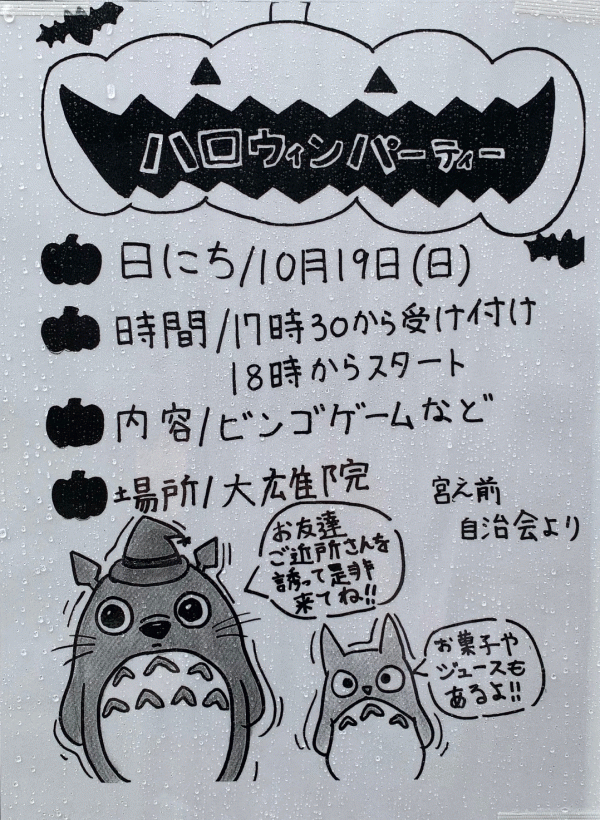 ハロウィンパーティー
日にち/10月19日(日)
時間/17時30から受け付け
18時からスタート
内容/ビンゴゲームなど
場所/大雄院
宮え前
自治会より
お友達
ご近所さんを
誘って是非
来てね!!
お菓子や
ジュースも
あるよ!!